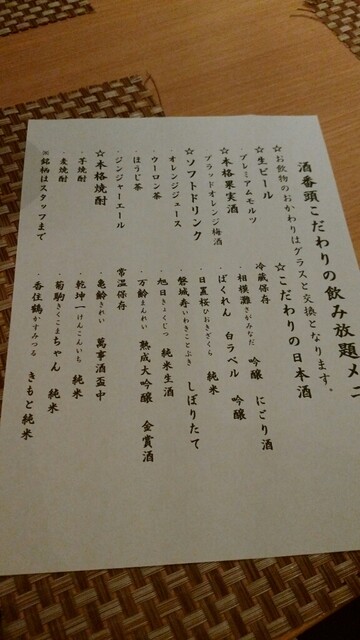 酒番頭こだわりの飲み放題メニ
☆お飲物のおかわりはグラスと交換となります。
☆生ビール
プレミアムモルツ
☆本格果実酒
ブラッドオレンジ梅酒
☆ソフトドリンク
・オレンジジュース
・ウーロン茶
・ほうじ茶
・ジンジャーエール
☆本格焼酎
・芋焼酎
・麦焼酎
※銘柄はスタッフまで
☆こだわりの日本酒
冷蔵保存
・相模灘さがみなだ 吟醸 にごり酒
・ばくれん 白ラベル 吟醸
・日置桜ひおきざくら 純米
・磐城寿いわきことぶき しぼりたて
・旭日きょくじつ 純米生酒
・万齢まんれい 熟成大吟醸 金賞酒
常温保存
・亀齢きれい 萬事酒盃中
・乾坤一けんこんいち 純米
・菊駒きくこまちゃん 純米
・香住鶴かすみつる きもと純米